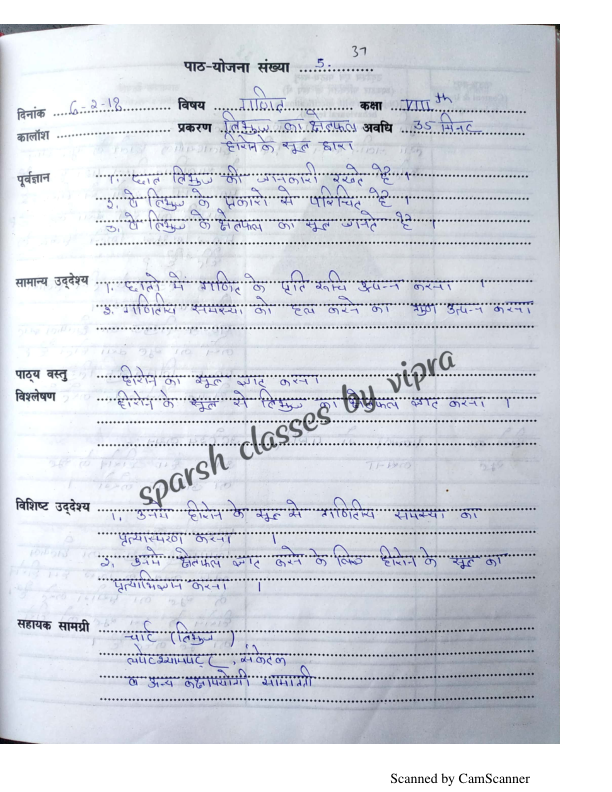 37
पाठ-योजना संख्या 5.
दिनांक 6-2-18 विषय गणित कक्षा VIIIth
कालॉश प्रकरण त्रिभुज का क्षेत्रफल अवधि 35 मिनट
हीरोन के सूत्र द्वारा
पूर्वज्ञान 1. छात्र त्रिभुज की जानकारी रखते है ।
2. वे त्रिभुज के प्रकारो से परिचित है ।
3. वे त्रिभुज के क्षेत्रफल का सूत्र जानते है ।
सामान्य उद्देश्य 1. छात्रो मे गणित के प्रति रूचि उत्पन्न करना ।
2. गणितीय समस्या को हल करने का गुण उत्पन्न करना
पाठ्य वस्तु हीरोन का सूत्र ज्ञात करना
विश्लेषण हीरोन के सूत्र से त्रिभुज का क्षेत्रफल ज्ञात करना ।
sparsh classes by vipra
विशिष्ट उद्देश्य 1. उनमे हीरोन के सूत्र से गणितीय समस्या का
प्रत्यास्मरण करना ।
2. उनमे क्षेत्रफल ज्ञात करने के लिए हीरोन के सूत्र का
प्रत्याभिज्ञान करना ।
सहायक सामग्री चार्ट (त्रिभुज)
लपेटश्यामपट्ट, संकेतक
व अन्य कक्षोपयोगी सामाग्री
Scanned by CamScanner